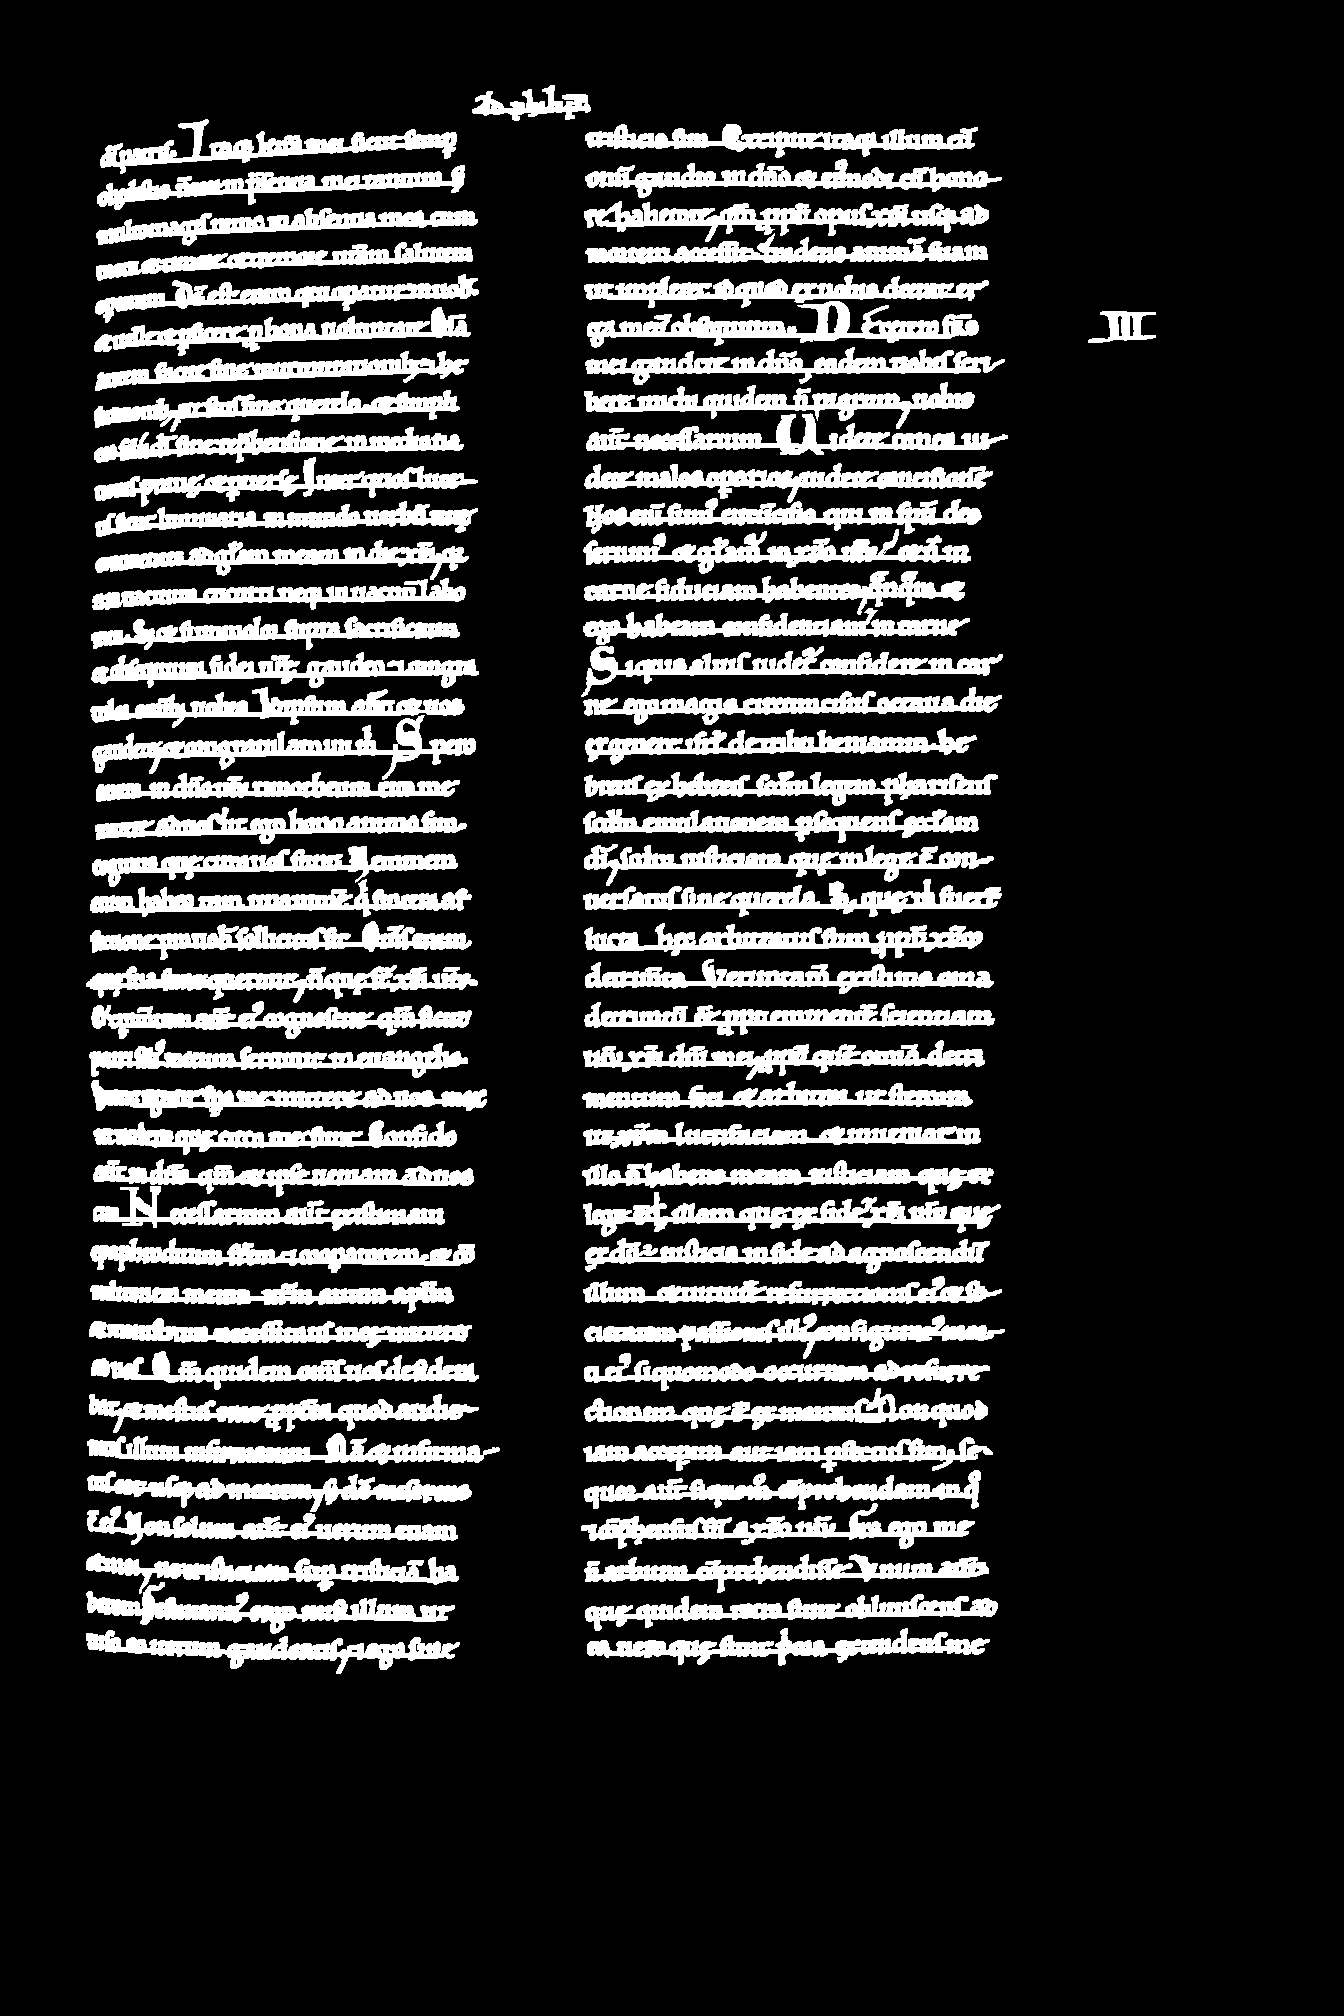 Ad philipp̄
d̄i patris. Itaq; kr̄mi mei sicut semp
obedistis n̄ ut in p̄sentia mei tantum s;
multomagis nunc in absentia mea cum
metu et tremore ur̄am salutem
operamini Ds̄ est enim qui operatur in uob̄
et uelle et p̄ficere p̄ bona uoluntate Om̄a
autem facite sine murmurationib; & he
sitationib; ut sitis sine querela et simpli
ces filii dī sine rep̄hensione in medio na
tionis praue et peruerse Inter quos luce
tis sicut luminaria in mundo uerbū uitę
continentes ad gl̄am meam in die xp̄i, q̄
non in uacuum cucurri neq; in uacuū labo
raui. S; et si immolor supra sacrificium
et obsequium fidei ur̄ę gaudeo & congra
tulor omīb; uobis Id ipsum aūt et uos
gaudete, et congratulamini m̄ Spero
autem in dn̄o ih̄u timotheum cito me
mittere ad uos ut ego bono animo sim
cognitis que circa uos sunt Neminem
enim habeo tam unanimē q̄ sincera af
fectione pro uob̄ sollicitus sit Om̄s enim
que sua sunt querunt, n̄ que st̄ xp̄i ih̄u.
Experimtum aūt ei' cognoscite qm̄ sicut
patri fili' mecum seruiuit in euangelio.
Hunc igitur spero me mittere ad uos mox
ut uidero que circa me sunt Confido
aūt in dn̄o qm̄ et ipse ueniam ad uos
cito Necessarium aūt existimaui
epaphroditum fr̄em & cooperatorem et cō
militonem meum ur̄m autem apl̄m
et ministrum necessitatis meę mittere
ad uos Qm̄ quidem om̄s uos desidera
bat, et mestus erat ppt̄ea quod audie
ratis illum infirmatum Nā et infirma
tus est usq; ad mortem, s; ds̄ misertus
ē ei' Non solum aūt ei' uerum etiam
et mei, ne tristiciam sup tristiciā ha
berem Festinanti' ergo misi illum ut
uiso eo iterum gaudeatis, & ego sine
tristicia sim Excipite itaq; illum cū
omī gaudio in dn̄o et ei'modi cū hono
re habetote, qm̄ ppt̄ opus xp̄i usq; ad
mortem accessit tradens animā suam
ut impleret id quod ex uobis deerat er
ga meū obsequium. De cetero frs̄
mei gaudete in dn̄o, eadem uobis scri
bere michi quidem n̄ pigrum, uobis
aūt necessarium Uidete canes ui
dete malos operarios, uidete concisionē
Nos enī sum' circūcisio qui in spū deo
seruim' et gl̄iam' in xp̄o ih̄u et n̄ in
carne fiduciam habentes, q̄nq̄m et
ego habeam confidentiam in carne
Siquis alius uidet' confidere in car
ne ego magis circumcisus octaua die
ex genere isrl̄ de tribu beniamin he
breus ex hebreis sc̄dm legem phariseus
sc̄dm emulationem p̄sequens ęccl̄am
dī, scdm iusticiam que in lege ē con
uersatus sine querela S; que m̄ fuerūt
lucra hec arbitratus sum ppt̄ xp̄m
detrim̄ta Verumtam̄ existimo omia
detrimtū ēē ppt̄ eminentē scientiam
ih̄u xp̄i dnī mei, ppt̄ quē omia detri
mentum feci et arbitror ut stercora
ut xp̄m lucrifaciam et inueniar in
illo n̄ habens meam iusticiam que ex
lege est s; illam que ex fide ē xp̄i ih̄u que
ex dō ē iusticia in fide ad agnoscendū
illum et uirtutē resurrectionis ei' et so
cietatem passionis illi', configurat' mor
ti ei' siquomodo occurram ad resurre
ctionem que ē ex mortuis Non quod
iam acceperim aut iam pfectus sim, se
quor aūt siquom̄ cōprehendam in q̄
& cōp̄hensus sū a xp̄o ih̄u Frs̄ ego me
n̄ arbitror cōprehendisse Vnum aūt
que quidem retro sunt obliuiscens ad
ea uero que sunt priora extendens me
III